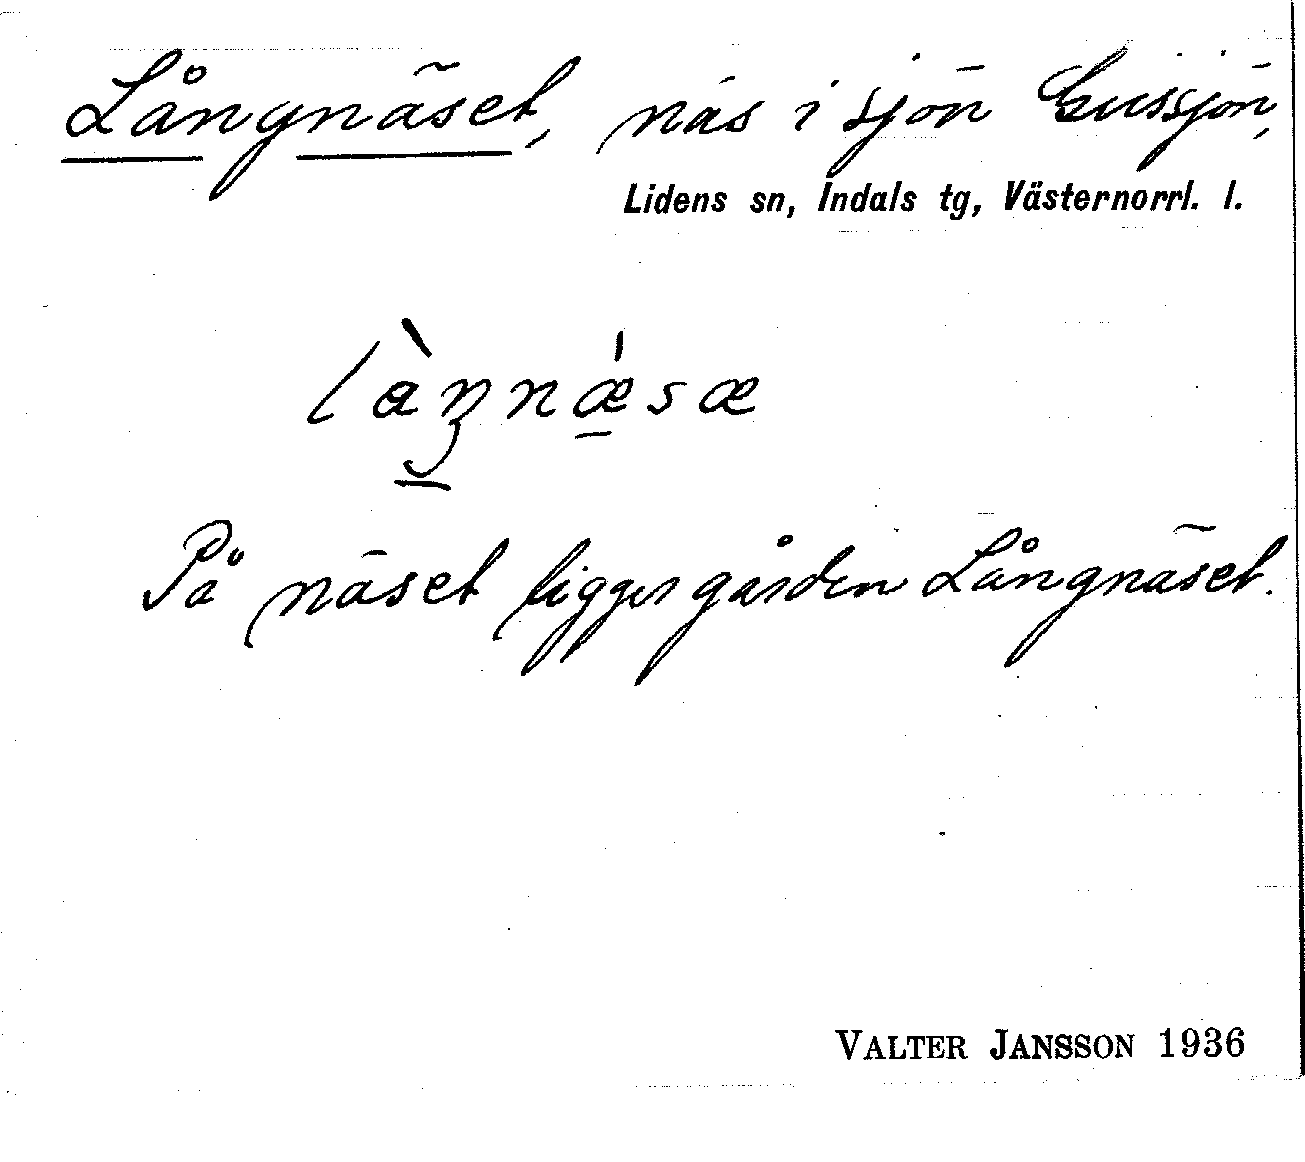 Långnäset, näs i sjön Gussjön,
Lidens sn, Indals tg, Västernorrl. l.
På näset ligger gården Långnäset.
VALTER JANSSON 1936